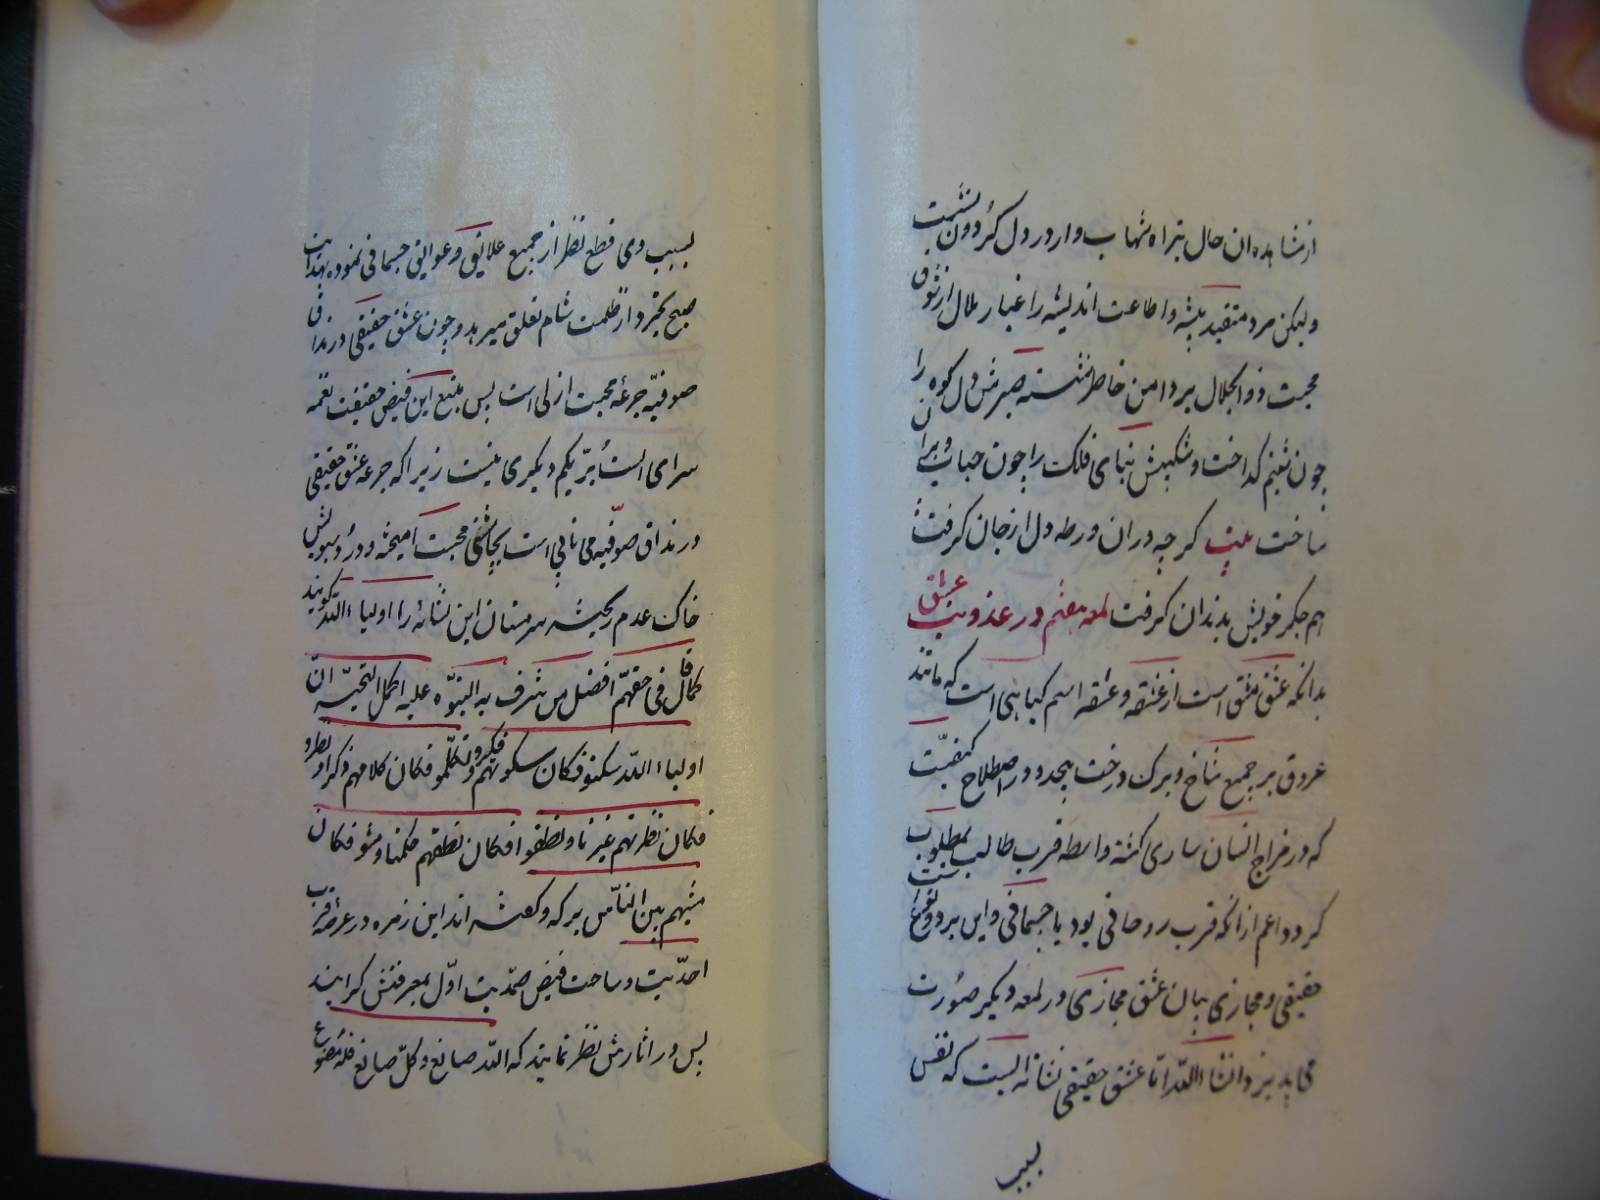 از مشاهده ان حال تیر اه شهاب وار در دل گردون نشست
ولیکن مرد متقید پیشه و اطاعت اندیشه را غبار ملال از شوق
محبت ذوالجلال بر دامن خاطر ننشسته صبرش دل کوه را
چون شبنم کداخت و شکیبش بنای فلک را چون حباب ویران
ساخت بیت کرچه دران ورطه دل از جان کرفت
هم جکر خویش بدندان کرفت لمعه هفتم در عذوبت عشق
بدانکه عشق مشتق است از عشقه و عشقه اسم کیاهی است که مانند
عروق بر جمیع شاخ و برک درخت پیچد و در اصطلاح کیفیّت
که در مزاج انسان ساری کشته واسطه قرب طالب بمطلوب
کردد اعم ازانکه قرب روحانی بود یا جسمانی و این بر دو نوع است
حقیقی و مجازی بیان عشق مجازی در لمعه دیکر صورت
می پذیرد انشاءالله اما عشق حقیقی نشائه ایست که نفس
بسبب
بسبب وی قطع نظر از جمیع علایق و عوایق جسمانی نموده بهدایت
صبح تجرد از ظلمت شام تعلق میرهد و چون عشق حقیقی در مذاق
صوفیّه جرعۀ محبت ازلی است پس منبع این فیض حقیقت نغمه
سرای الستُ بربّکم دیکری نیست زیرا که جرعه عشق حقیقی
در مذاق صوفیه می نابی است بچاشنی محبت امیخته و دُرد سبویش
خاک عدم ریخته سرمستان این نشائه را اولیاءالله کویند
قا کمال فی حقهم افضل من شرف به النبوّه علیه اکمل التحیّه انّ
اولیاءالله سکتوا فکان سکوتهم فکرا و تکلّموا فکان کلامهم ذکرا و نظروا
فکان نظرتهم عبرتا و نطقوا فکان نطقهم حکمتا و مشو فکان
مشیهم بین النّاس برکه و کفته اند این زمره در عرصۀ قرب
احدّیت و ساحت فیض صمدّیت اوّل بمعرفتش کرایند
پس در اثارش نظر نمایند که الله صانع و کلّ صانع فله مصنوع